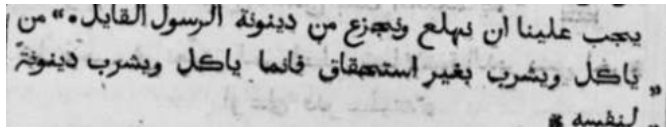 يجب علينا ان نهلع ونجزع من دينونة الرسول القايل. «من
„ ياكل ويشرب بغير استحقاق فانما ياكل ويشرب دينونة
„ لنفسه »